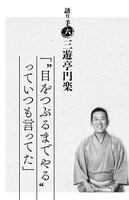 語り手 六 三遊亭円楽
「“目をつぶるまでやる”
っていつも言ってた」